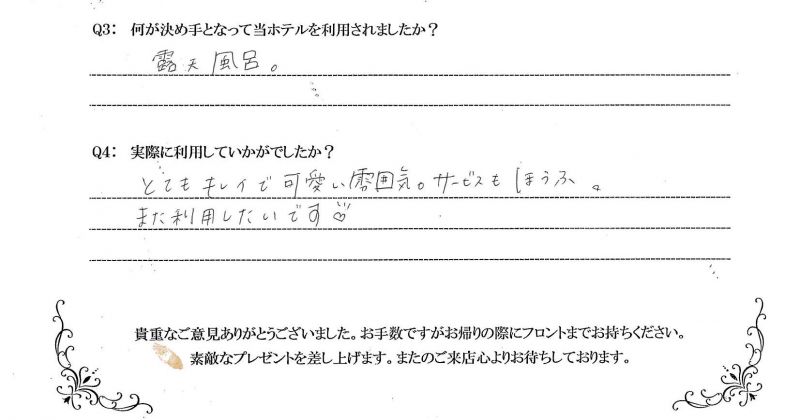 Q3: 何が決め手となって当ホテルを利用されましたか?
露天風呂。
Q4: 実際に利用していかがでしたか?
とてもキレイで可愛い雰囲気。サービスもほうふ。
また利用したいです♡
貴重なご意見ありがとうございました。お手数ですがお帰りの際にフロントまでお持ちください。
素敵なプレゼントを差し上げます。またのご来店心よりお待ちしております。